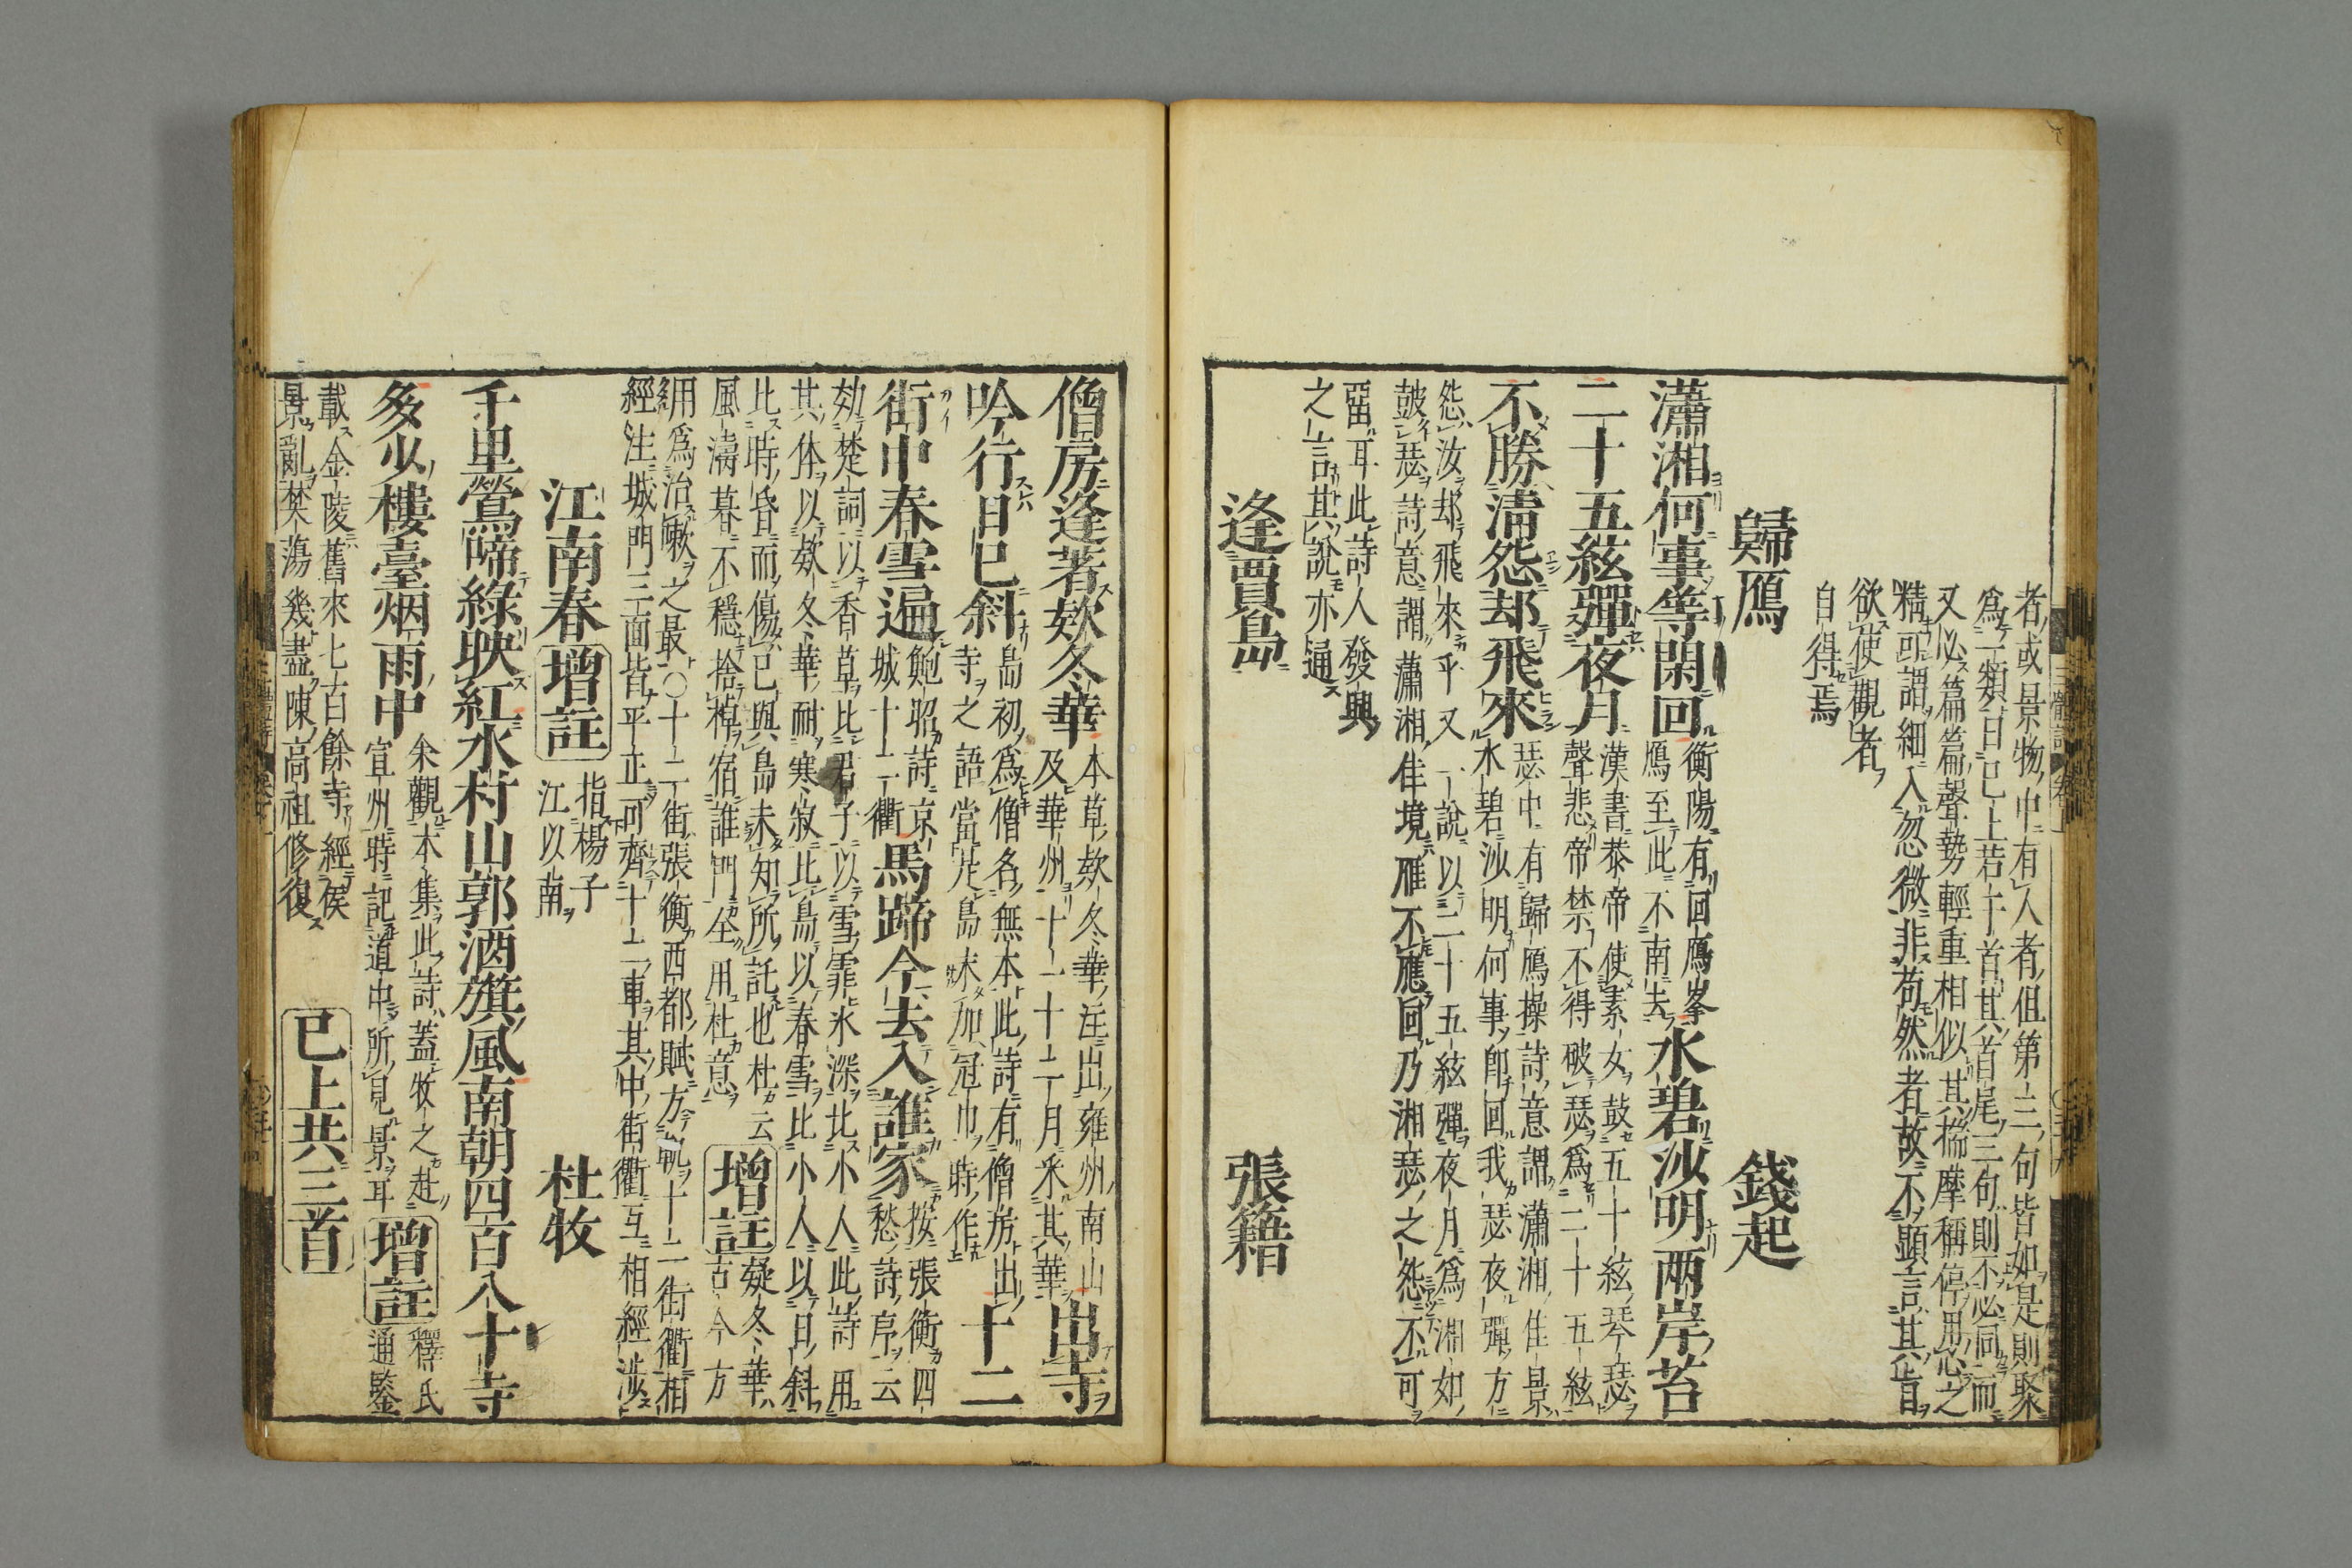 者或景物中有人者但第三句皆如是則聚
爲一類自已上若干首其首尾三句則不必同而
又必篇篇聲勢輕重相似其揣摩稱停用心之
精可謂細入忽微非苟然者故不顯言其旨
欲使觀者
自得焉
歸鴈 錢起
瀟湘何事等閑回 衡陽有回鴈峯
鴈至此不南去 水碧沙明兩岸苔
二十五絃彈夜月 漢書泰帝使素女鼓五十絃琴瑟
聲悲帝禁不得破瑟爲二十五絃
不勝淸怨却飛來 瑟中有歸鴈操詩意謂瀟湘佳景
水碧沙明何事卽回我瑟夜彈方
怨汝却飛來乎又一說以二十五絃彈夜月爲湘如
鼓瑟詩意謂瀟湘佳境雁不應回乃湘瑟之怨不可
畱耳此詩人發興
之言其說亦通
逢賈島 張籍
僧房逢著欵冬華 本草欵冬華注出雍州南山
及華州十一十二月采其華 出寺
吟行日已斜 島初爲僧名無本此詩有僧房出
寺之語當是島未加冠巾時作 十二
街中春雪遍 鮑昭詩京
城十二衢 馬蹄今去入誰家 按張衡四
愁詩序云
効楚詞以香草比君子以雪霏氷深比小人此詩用
其体以欵冬華耐寒寂比島以春雪比小人以日斜
比時昏而傷已與島未知所託也杜云
風濤暮不穩捨棹宿誰門全用杜意
增註 疑冬華
古今方
用爲治嗽之最○十二街張衡西都賦方軌十二街衢相
經注城門三面皆平正可齊十二車其中街衢互相經涉
江南春 增註 指楊子
江以南 杜牧
千里鶯啼綠映紅水村山郭酒旗風南朝四百八十寺
多少樓臺烟雨中 余觀本集此詩蓋牧之赴
宣州時記道中所見景耳 增註 釋氏
通鑒
載金陵舊來七百餘寺經侯
景亂焚蕩幾盡陳高祖修復
已上共三首